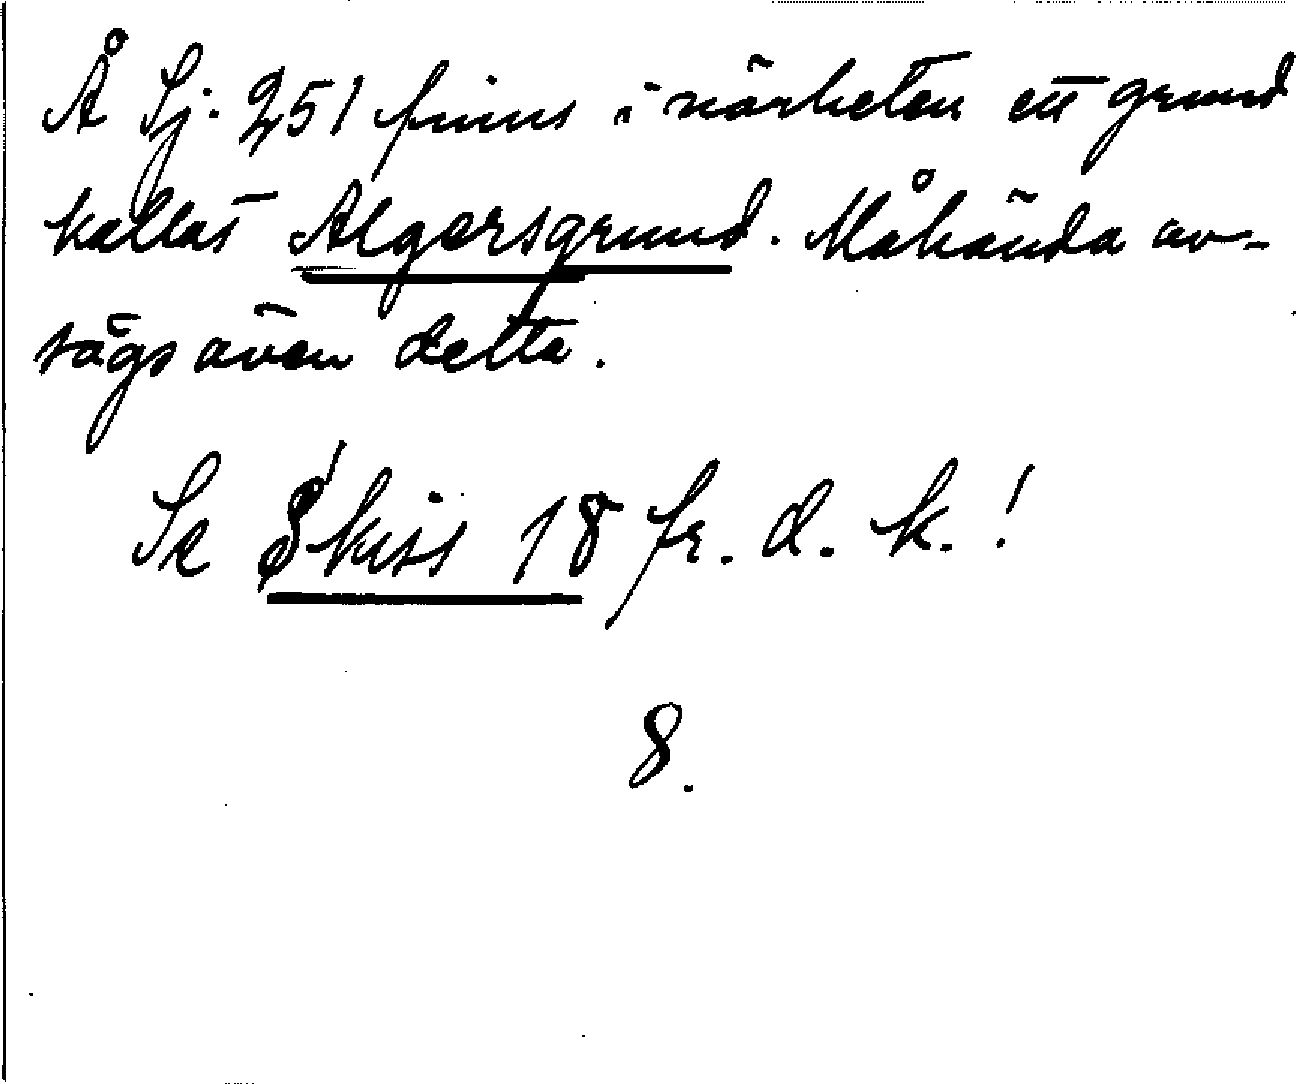 Å Sj. 251 finns i närheten ett grund
kallat Algersgrund. Måhända av-
sågs även detta.
Se Skiss 18 fr. d. k.!
8.